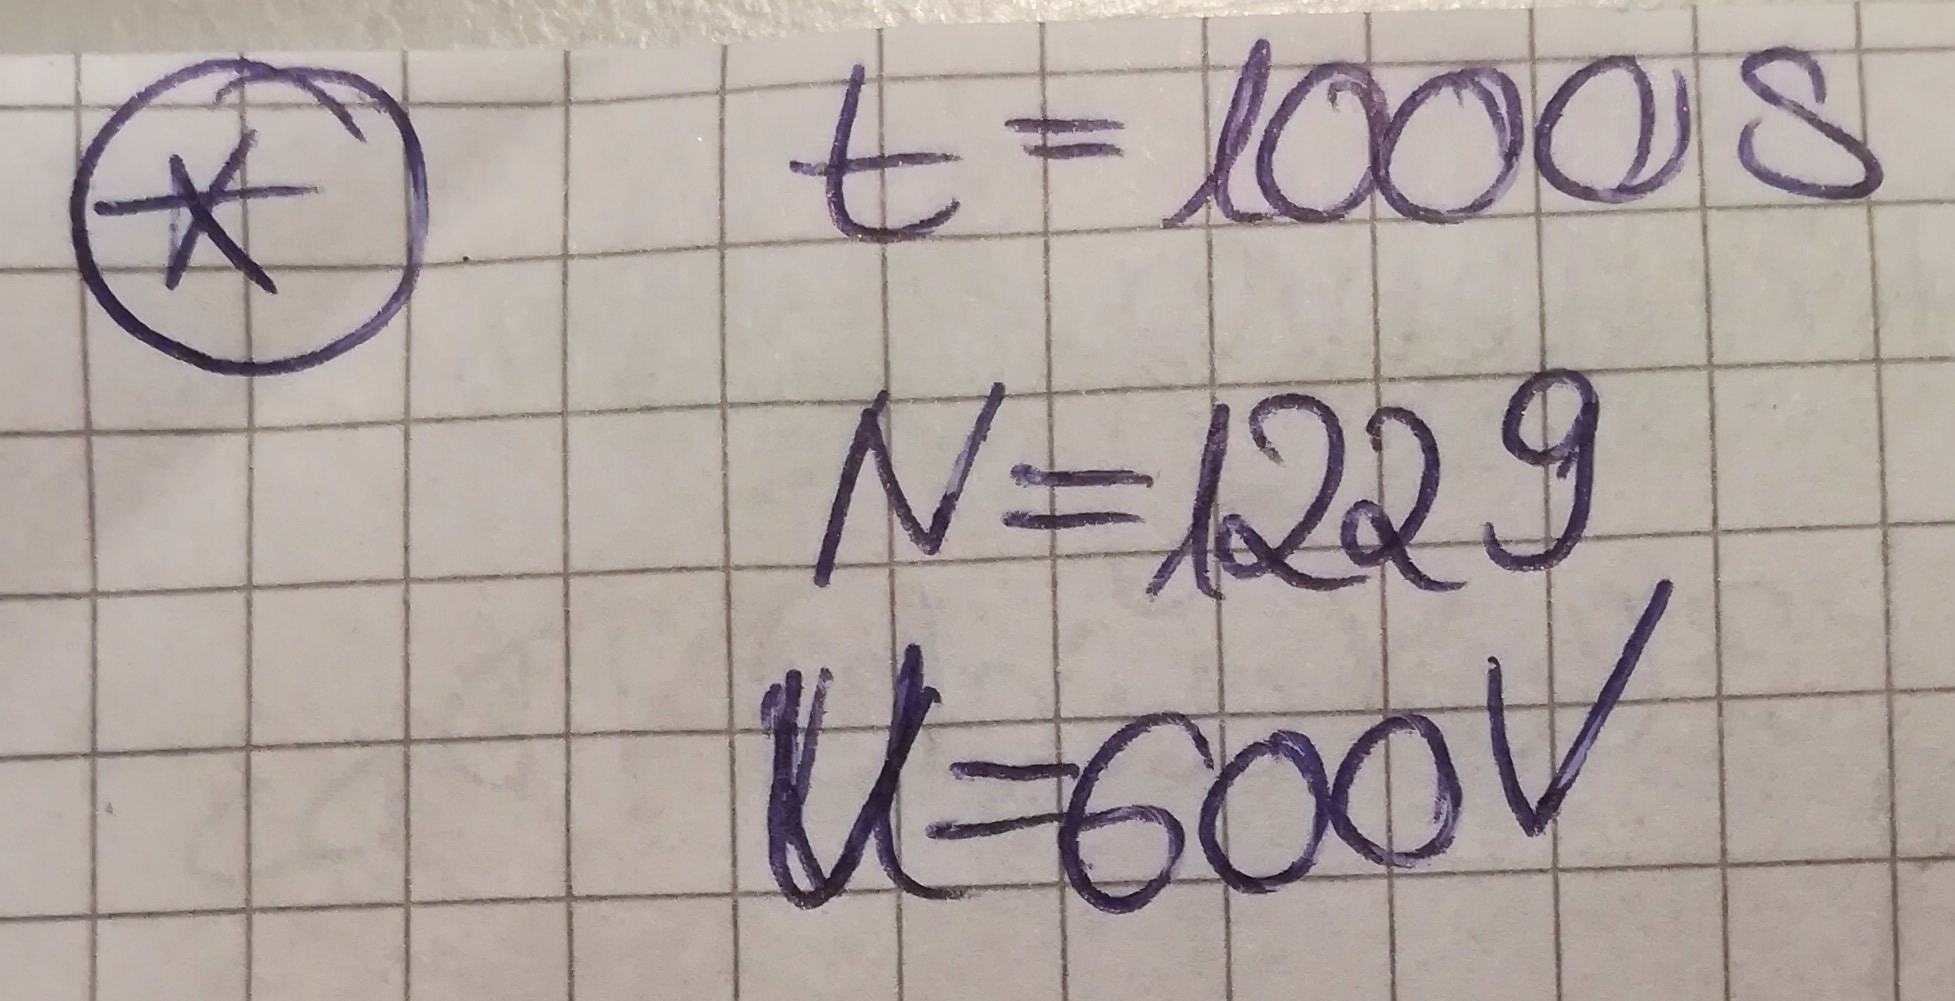 * t = 1000 s
N = 1229
U = 600V